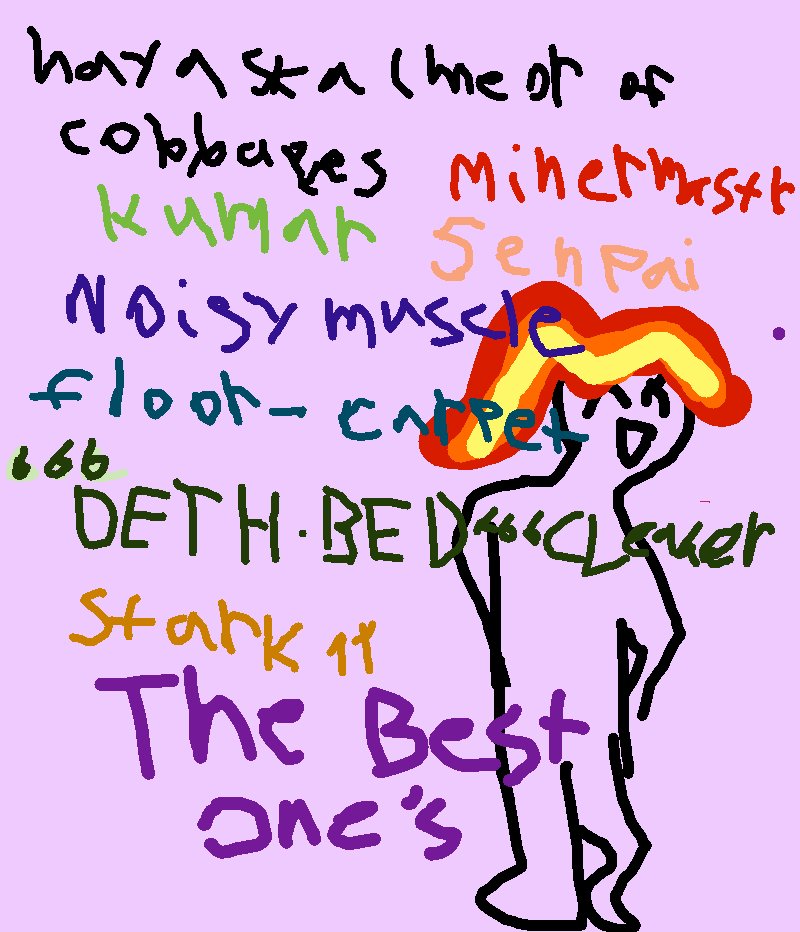 hay a sta lment of
cobbages
Minermastr
Kumar
Senpai
Noisy muscle
floor-carpet
666
DETH.BED 666 CLeaver
Stark 11
The Best
one's